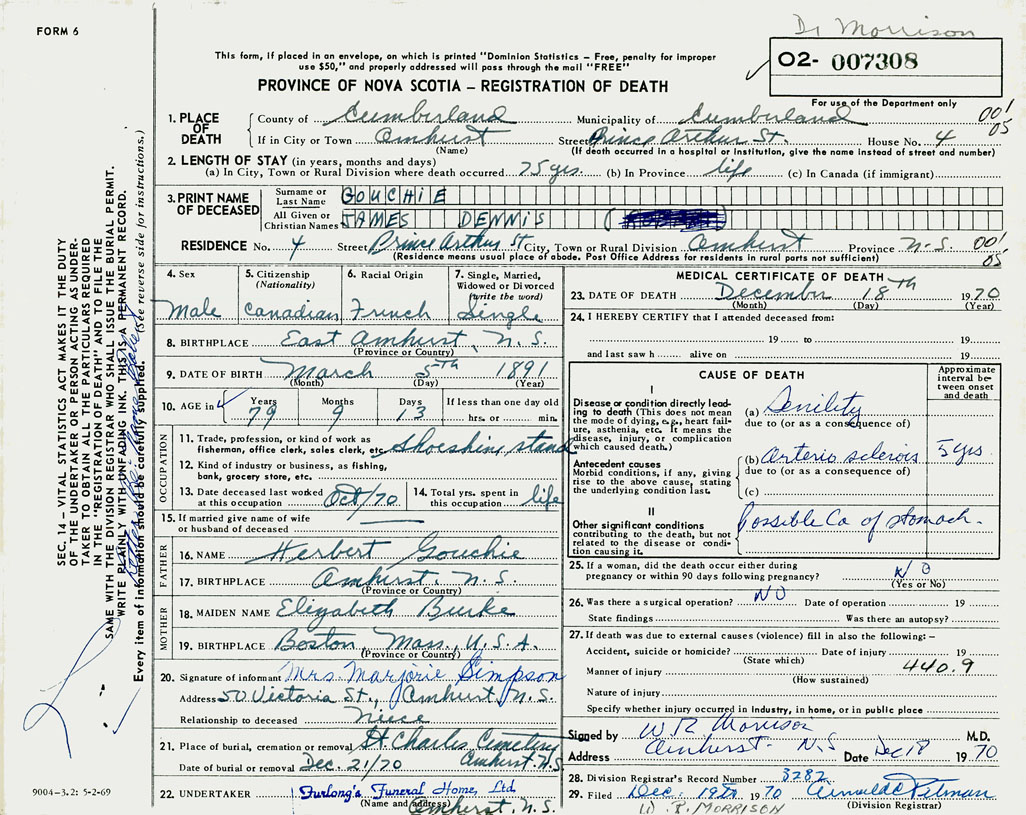 Dr Morrison
FORM 6
This form, if placed in an envelope, on which is printed "Dominion Statistics – Free, penalty for improper
use $50," and properly addressed will pass through the mail "FREE"
02- 007308
PROVINCE OF NOVA SCOTIA – REGISTRATION OF DEATH
For use of the Department only
1. PLACE OF DEATH
County of Cumberland Municipality of Cumberland 001
If in City or Town Amhurst Street Prince Arthur St. House No. 4 05
(Name) (If death occurred in a hospital or institution, give the name instead of street and number)
2. LENGTH OF STAY (in years, months and days)
(a) In City, Town or Rural Division where death occurred 75 yrs. (b) In Province life (c) In Canada (if immigrant)
3. PRINT NAME OF DECEASED
Surname or Last Name GOUCHIE
All Given or Christian Names JAMES DENNIS (
RESIDENCE No. 4 Street Prince Arthur St City, Town or Rural Division Amhurst Province N.S. 001
(Residence means usual place of abode. Post Office Address for residents in rural parts not sufficient) 05
4. Sex Male
5. Citizenship (Nationality) Canadian
6. Racial Origin French
7. Single, Married, Widowed or Divorced (write the word) Single
8. BIRTHPLACE East Amhurst, N.S.
(Province or Country)
9. DATE OF BIRTH March 5th 1891
(Month) (Day) (Year)
10. AGE in Years 79 Months 9 Days 13 If less than one day old hrs. or min.
OCCUPATION
11. Trade, profession, or kind of work as
fisherman, office clerk, sales clerk, etc. Shoeshine stand
12. Kind of industry or business, as fishing,
bank, grocery store, etc.
13. Date deceased last worked at this occupation Oct/70
14. Total yrs. spent in this occupation life
15. If married give name of wife
or husband of deceased
FATHER
16. NAME Herbert Gouchie
17. BIRTHPLACE Amhurst, N.S.
(Province or Country)
MOTHER
18. MAIDEN NAME Elizabeth Burke
19. BIRTHPLACE Boston, Mass, U.S.A.
(Province or Country)
20. Signature of informant Mrs. Marjorie Simpson
Address 50 Victoria St., Amhurst N.S.
Relationship to deceased Neece
21. Place of burial, cremation or removal St Charles Cemetery
Date of burial or removal Dec. 21/70 Amhurst. N.S
22. UNDERTAKER Furlong's Funeral Home Ltd
(Name and address) Amhurst, N.S.
MEDICAL CERTIFICATE OF DEATH
23. DATE OF DEATH December 18th 1970
(Month) (Day) (Year)
24. I HEREBY CERTIFY that I attended deceased from:
19 to 19
and last saw h alive on 19
CAUSE OF DEATH
Approximate interval between onset and death
I
Disease or condition directly leading to death (This does not mean the mode of dying, e.g., heart failure, asthenia, etc. It means the disease, injury, or complication which caused death.)
(a) Senility
due to (or as a consequence of)
Antecedent causes
Morbid conditions, if any, giving rise to the above cause, stating the underlying condition last.
(b) Arterio sclerosis 5 yrs.
due to (or as a consequence of)
(c)
II
Other significant conditions
contributing to the death, but not related to the disease or condition causing it.
Possible Ca of stomach.
25. If a woman, did the death occur either during
pregnancy or within 90 days following pregnancy? NO
(Yes or No)
26. Was there a surgical operation? NO Date of operation 19
State findings Was there an autopsy?
27. If death was due to external causes (violence) fill in also the following: –
Accident, suicide or homicide? Date of injury 19
(State which)
Manner of injury 440.9
(How sustained)
Nature of injury
Specify whether injury occurred in industry, in home, or in public place
Signed by W R Morrison M.D.
Address Amherst - N.S Date Dec 18 1970
28. Division Registrar's Record Number 3282
29. Filed Dec. 19th 1970
(Division Registrar)
W. R. MORRISON
SEC. 14 – VITAL STATISTICS ACT MAKES IT THE DUTY
OF THE UNDERTAKER OR PERSON ACTING AS UNDER-
TAKER TO OBTAIN ALL THE PARTICULARS REQUIRED
IN THE "REGISTRATION OF DEATH" AND TO FILE THE
SAME WITH THE DIVISION REGISTRAR WHO SHALL ISSUE THE BURIAL PERMIT.
WRITE PLAINLY WITH UNFADING INK. THIS IS A PERMANENT RECORD.
Every item of information should be carefully supplied. (See reverse side for instructions.)
9004-3.2: 5-2-69